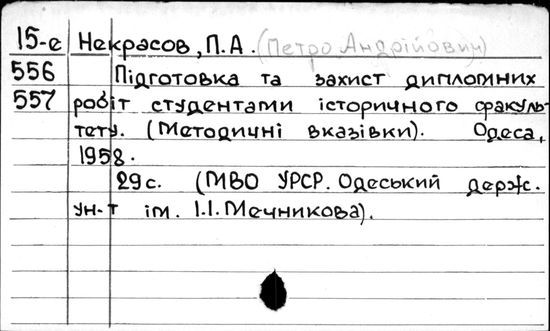 15-е Некрасов, П.А. (Петро Андрійович)
556 Підготовка та захист дипломних
557 робіт студентами історичного факуль-
тету. (Методичні вказівки). Одеса,
1958.
29с. (МВО УРСР. Одеський держ.
ун-т ім. І.І. Мечникова).